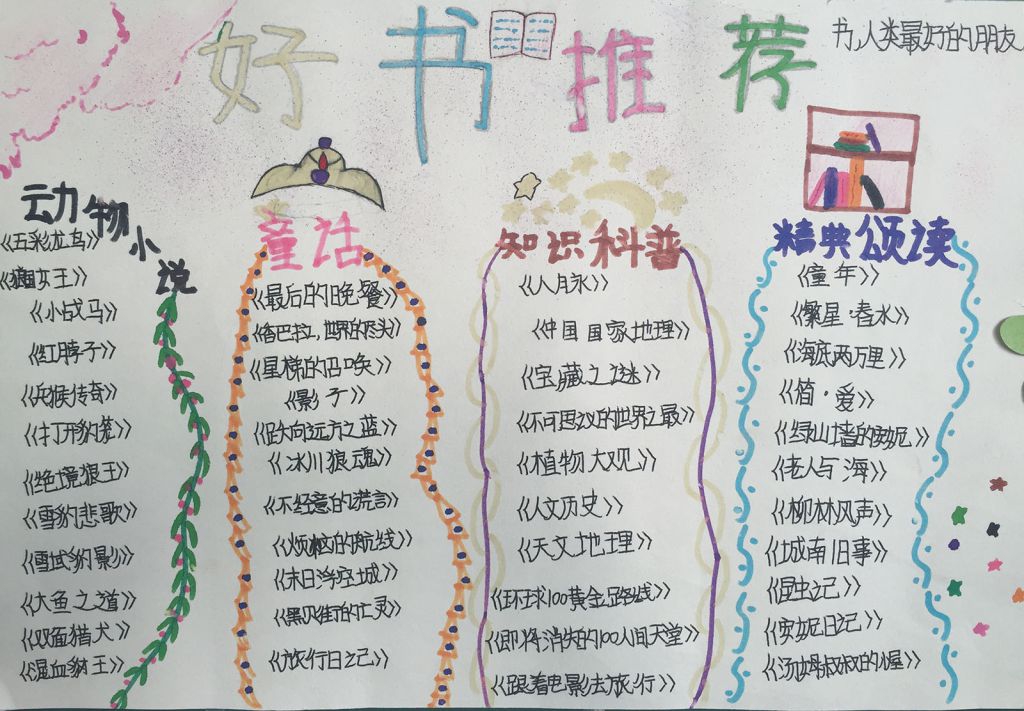 好书推荐
书,人类最好的朋友
动物小说
《五彩龙鸟》
《獾女王》
《小战马》
《红脖子》
《兵猴传奇》
《打开豹笼》
《绝境狼王》
《雪豹悲歌》
《雪域豹影》
《大鱼之道》
《双面猎犬》
《混血豺王》
童话
《最后的晚餐》
《哈巴拉,世界的尽头》
《星梯的召唤》
《影子》
《跃向远方之蓝》
《冰川狼魂》
《不经意的谎言》
《烦恼的航线》
《末日浮空城》
《黑风街的亡灵》
《旅行日之记》
知识科普
《人月永》
《中国国家地理》
《宝藏之谜》
《不可思议的世界之最》
《植物大观》
《人文历史》
《天文地理》
《环球100黄金路线》
《即将消失的100人间天堂》
《跟着电影去旅行》
精典颂读
《童年》
《繁星·春水》
《海底两万里》
《简·爱》
《绿山墙的安妮》
《老人与海》
《柳林风声》
《城南旧事》
《昆虫之记》
《安妮日记》
《汤姆叔叔的小屋》